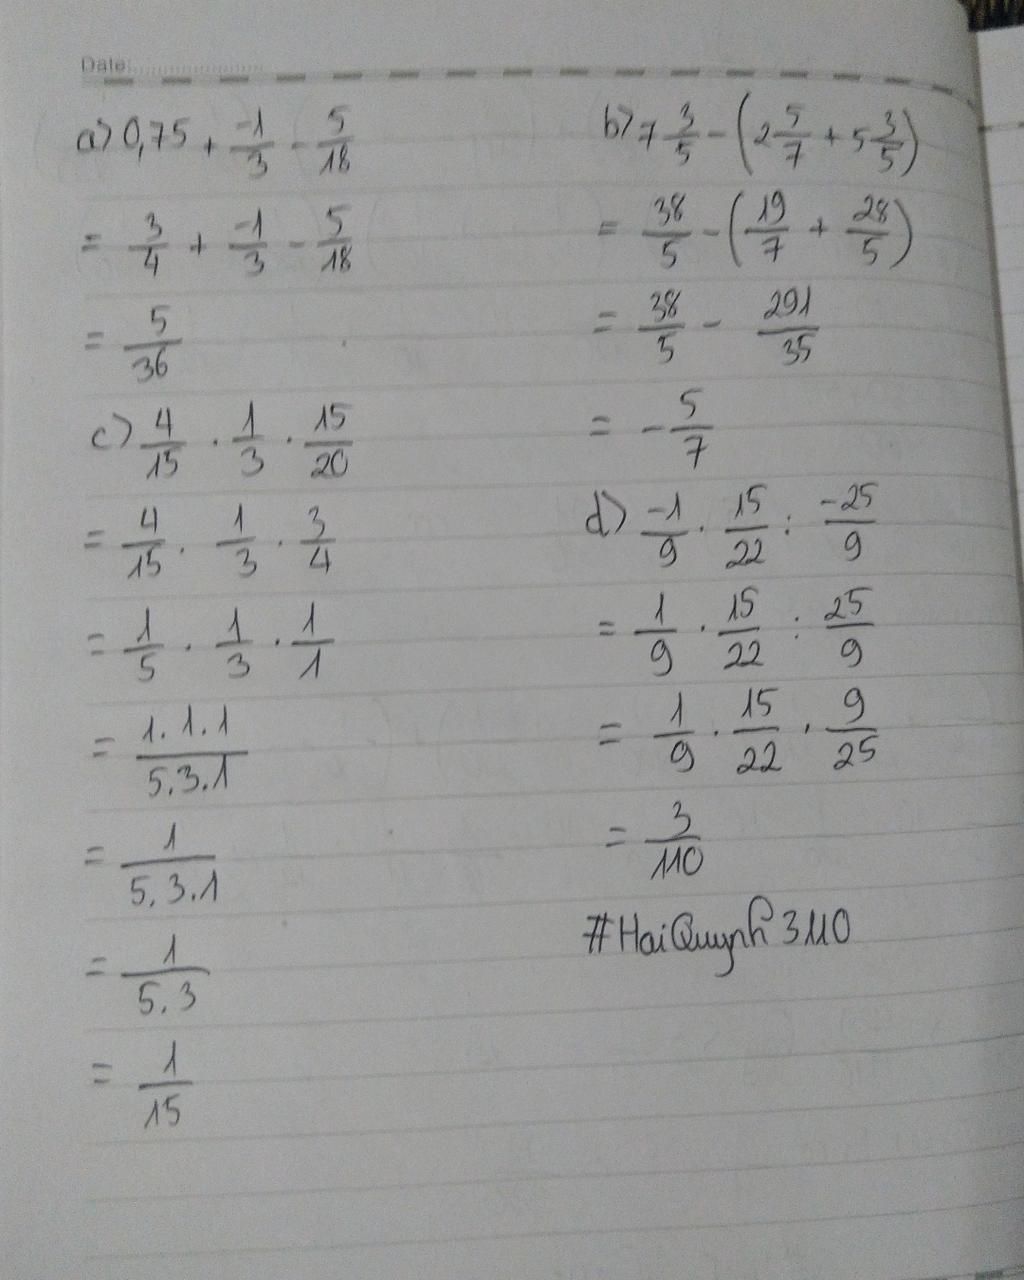 Date:
a) 0,75 + -1/3 - 5/18
= 3/4 + -1/3 - 5/18
= 5/36
c) 4/15 . 1/3 . 15/20
= 4/15 . 1/3 . 3/4
= 1/5 . 1/3 . 1/1
= 1.1.1/5.3.1
= 1/5.3.1
= 1/5.3
= 1/15
b) 7 3/5 - (2 5/7 + 5 3/5)
= 38/5 - (19/7 + 28/5)
= 38/5 - 291/35
= - 5/7
d) -1/9 . 15/22 : -25/9
= 1/9 . 15/22 : 25/9
= 1/9 . 15/22 . 9/25
= 3/110
#HaiQuynh3110